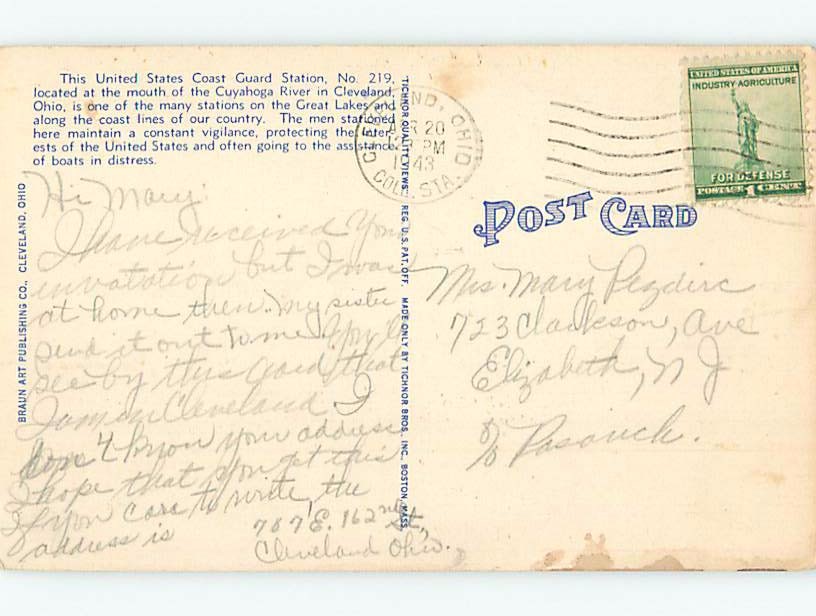 This United States Coast Guard Station, No. 219,
located at the mouth of the Cuyahoga River in Cleveland,
Ohio, is one of the many stations on the Great Lakes and
along the coast lines of our country. The men stationed
here maintain a constant vigilance, protecting the
ests of the United States and often going to the assistance
of boats in distress.
BRAUN ART PUBLISHING CO., CLEVELAND, OHIO
"TICHNOR QUALITY VIEWS" REG. U. S. PAT. OFF. MADE ONLY BY TICHNOR BROS., INC., BOSTON, MASS.
CLEVELAND, OHIO
20
PM
1943
COLL. STA.
UNITED STATES OF AMERICA
INDUSTRY AGRICULTURE
FOR DEFENSE
POSTAGE 1 CENT
POST CARD
Hi Mary:
I have received your
invatation but I was
at home then. My sister
send it out to me. You'll
see by this card that
I am in Cleveland I
don't know your address
I hope that you get this
If you care to write, the
address is
787 E. 162nd St,
Cleveland Ohio.
Mrs. Mary Pezdirc
723 Clarkson, Ave
Elizabeth, N J
c/o